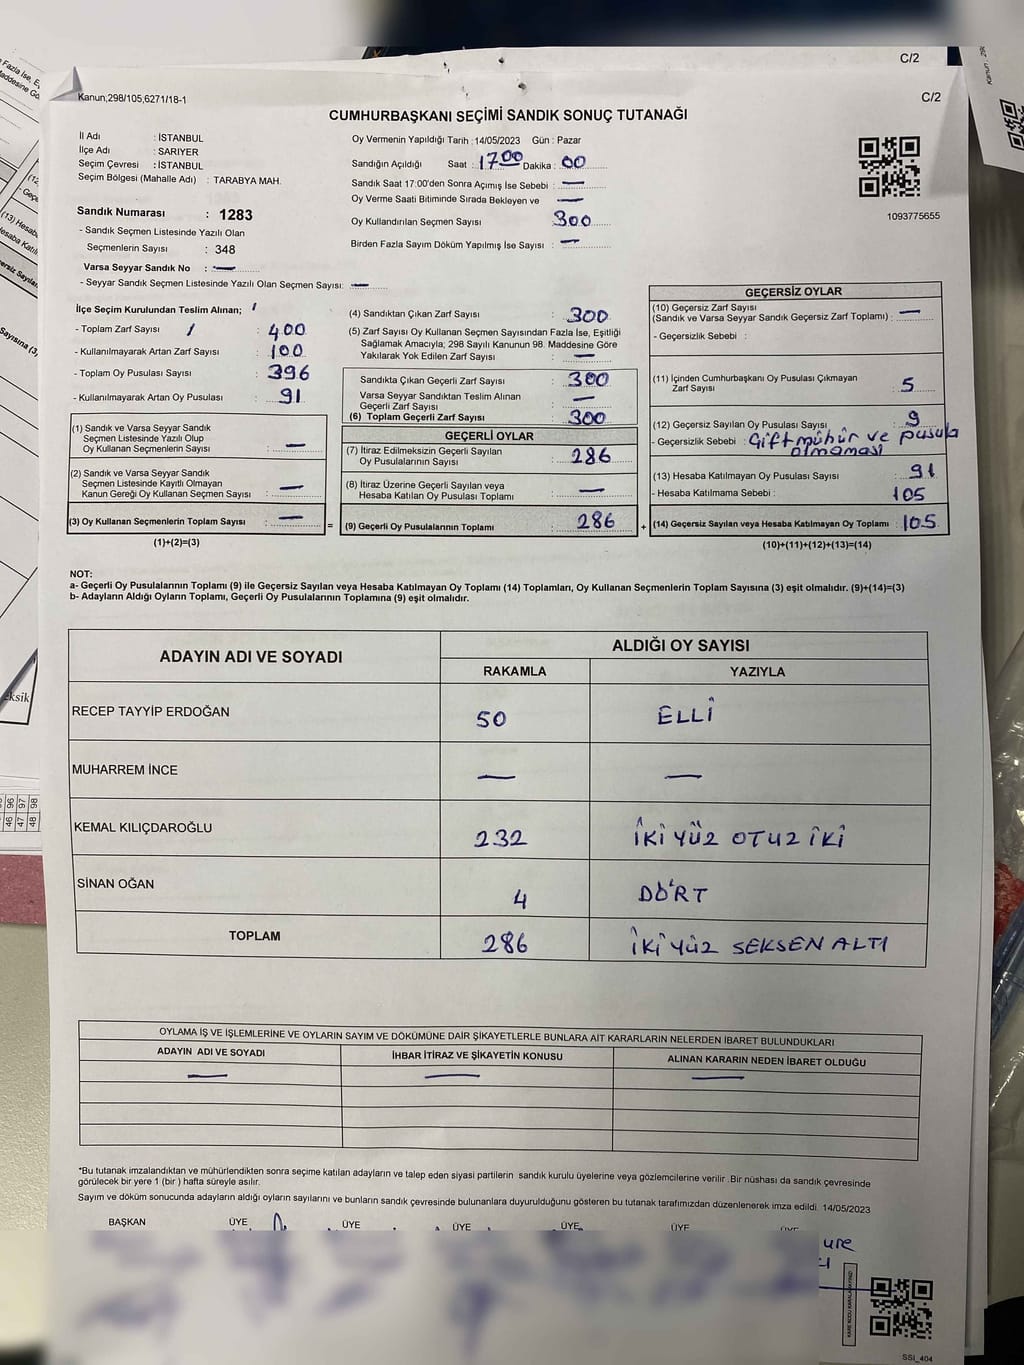 C/2
Kanun,298/105,6271/18-1
C/2
CUMHURBAŞKANI SEÇİMİ SANDIK SONUÇ TUTANAĞI
İl Adı : İSTANBUL
İlçe Adı : SARIYER
Seçim Çevresi : İSTANBUL
Seçim Bölgesi (Mahalle Adı) : TARABYA MAH.
Sandık Numarası : 1283
- Sandık Seçmen Listesinde Yazılı Olan
Seçmenlerin Sayısı : 348
Varsa Seyyar Sandık No : —
- Seyyar Sandık Seçmen Listesinde Yazılı Olan Seçmen Sayısı: —
Oy Vermenin Yapıldığı Tarih : 14/05/2023 Gün : Pazar
Sandığın Açıldığı Saat : 17.00 Dakika : 00
Sandık Saat 17:00'den Sonra Açımış İse Sebebi : —
Oy Verme Saati Bitiminde Sırada Bekleyen ve —
Oy Kullandırılan Seçmen Sayısı 300
Birden Fazla Sayım Döküm Yapılmış İse Sayısı : —
1093775655
İlçe Seçim Kurulundan Teslim Alınan;
- Toplam Zarf Sayısı : 400
- Kullanılmayarak Artan Zarf Sayısı : 100
- Toplam Oy Pusulası Sayısı : 396
- Kullanılmayarak Artan Oy Pusulası : 91
(1) Sandık ve Varsa Seyyar Sandık
Seçmen Listesinde Yazılı Olup
Oy Kullanan Seçmenlerin Sayısı : —
(2) Sandık ve Varsa Seyyar Sandık
Seçmen Listesinde Kayıtlı Olmayan
Kanun Gereği Oy Kullanan Seçmen Sayısı : —
(3) Oy Kullanan Seçmenlerin Toplam Sayısı : — =
(1)+(2)=(3)
(4) Sandıktan Çıkan Zarf Sayısı : 300
(5) Zarf Sayısı Oy Kullanan Seçmen Sayısından Fazla İse, Eşitliği
Sağlamak Amacıyla; 298 Sayılı Kanunun 98. Maddesine Göre
Yakılarak Yok Edilen Zarf Sayısı : —
Sandıkta Çıkan Geçerli Zarf Sayısı : 300
Varsa Seyyar Sandıktan Teslim Alınan
Geçerli Zarf Sayısı : —
(6) Toplam Geçerli Zarf Sayısı : 300
GEÇERLİ OYLAR
(7) İtiraz Edilmeksizin Geçerli Sayılan
Oy Pusulalarının Sayısı : 286
(8) İtiraz Üzerine Geçerli Sayılan veya
Hesaba Katılan Oy Pusulası Toplamı : —
(9) Geçerli Oy Pusulalarının Toplamı : 286 +
GEÇERSİZ OYLAR
(10) Geçersiz Zarf Sayısı
(Sandık ve Varsa Seyyar Sandık Geçersiz Zarf Toplamı) : —
- Geçersizlik Sebebi :
(11) İçinden Cumhurbaşkanı Oy Pusulası Çıkmayan
Zarf Sayısı : 5
(12) Geçersiz Sayılan Oy Pusulası Sayısı : 9
- Geçersizlik Sebebi : Çift mühür ve pusula
olmaması
(13) Hesaba Katılmayan Oy Pusulası Sayısı : 91
- Hesaba Katılmama Sebebi : 105
(14) Geçersiz Sayılan veya Hesaba Katılmayan Oy Toplamı : 105
(10)+(11)+(12)+(13)=(14)
NOT:
a- Geçerli Oy Pusulalarının Toplamı (9) ile Geçersiz Sayılan veya Hesaba Katılmayan Oy Toplamı (14) Toplamları, Oy Kullanan Seçmenlerin Toplam Sayısına (3) eşit olmalıdır. (9)+(14)=(3)
b- Adayların Aldığı Oyların Toplamı, Geçerli Oy Pusulalarının Toplamına (9) eşit olmalıdır.
ADAYIN ADI VE SOYADI
ALDIĞI OY SAYISI
RAKAMLA YAZIYLA
RECEP TAYYİP ERDOĞAN 50 ELLİ
MUHARREM İNCE — —
KEMAL KILIÇDAROĞLU 232 İKİ YÜZ OTUZ İKİ
SİNAN OĞAN 4 DÖRT
TOPLAM 286 İKİ YÜZ SEKSEN ALTI
OYLAMA İŞ VE İŞLEMLERİNE VE OYLARIN SAYIM VE DÖKÜMÜNE DAİR ŞİKAYETLERLE BUNLARA AİT KARARLARIN NELERDEN İBARET BULUNDUKLARI
ADAYIN ADI VE SOYADI İHBAR İTİRAZ VE ŞİKAYETİN KONUSU ALINAN KARARIN NEDEN İBARET OLDUĞU
— — —
*Bu tutanak imzalandıktan ve mühürlendikten sonra seçime katılan adayların ve talep eden siyasi partilerin sandık kurulu üyelerine veya gözlemcilerine verilir .Bir nüshası da sandık çevresinde
görülecek bir yere 1 (bir ) hafta süreyle asılır.
Sayım ve döküm sonucunda adayların aldığı oyların sayılarını ve bunların sandık çevresinde bulunanlara duyurulduğunu gösteren bu tutanak tarafımızdan düzenlenerek imza edildi. 14/05/2023
BAŞKAN ÜYE ÜYE ÜYE ÜYE ÜYE ÜYE
ure
SSI_404